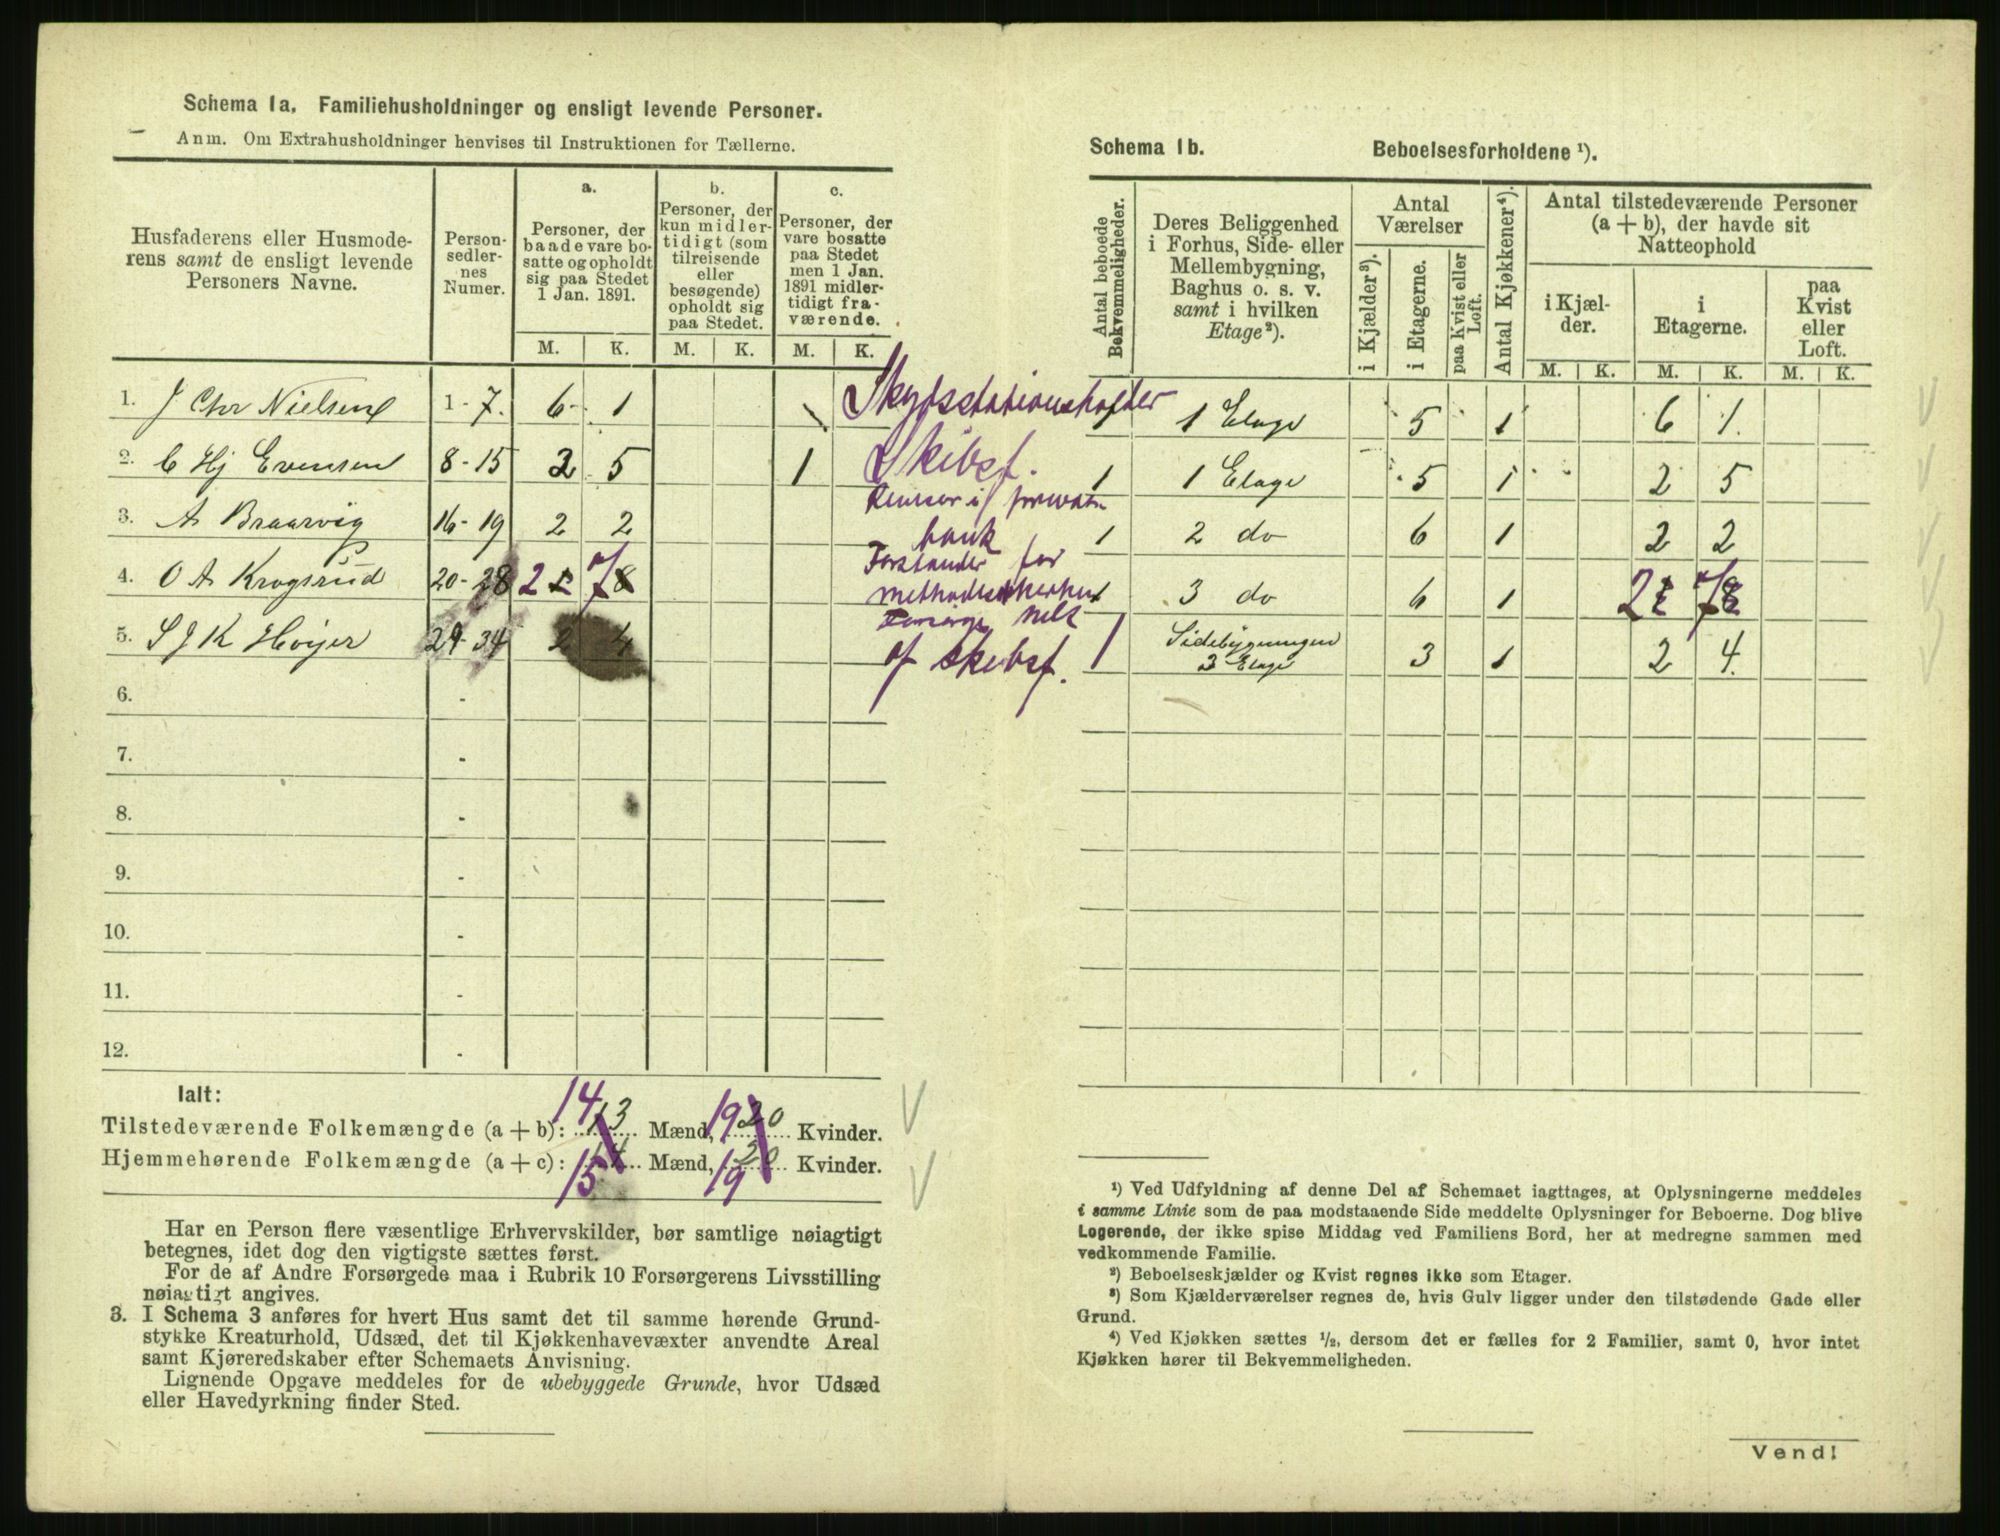 Schema 1a. Familiehusholdninger og ensligt levende Personer.
Anm. Om Extrahusholdninger henvises til Instruktionen for Tællerne.
Husfaderens eller Husmoderens samt de ensligt levende Personers Navne.
Personsedlernes Numer.
a. Personer, der baade vare bosatte og opholdt sig paa Stedet 1 Jan. 1891.
b. Personer, der kun midlertidigt (som tilreisende eller besøgende) opholdt sig paa Stedet.
c. Personer, der vare bosatte paa Stedet men 1 Jan. 1891 midlertidigt fraværende.
M. K. M. K. M. K.
1. J Chr Nielsen 1-7. 6 1 Skydsstationsholder
2. C Hj Evensen 8-15 2 5 1 Skibsf.
3. A Braarvig 16-19 2 2 Revisor i privatbank
4. O A Krogsrud 20-28 2 7 8 Forstander for
5. S J K Høyer 29-34 2 4 af Skibsf.
6. -
7. -
8. -
9. -
10. -
11. -
12. -
Ialt:
Tilstedeværende Folkemængde (a+b): 14 13 Mænd, 19 20 Kvinder.
Hjemmehørende Folkemængde (a+c): 15 14 Mænd, 19 20 Kvinder.
Har en Person flere væsentlige Erhvervskilder, bør samtlige nøiagtigt
betegnes, idet dog den vigtigste sættes først.
For de af Andre Forsørgede maa i Rubrik 10 Forsørgerens Livsstilling
nøiagtigt angives.
3. I Schema 3 anføres for hvert Hus samt det til samme hørende Grund-
stykke Kreaturhold, Udsæd, det til Kjøkkenhavevæxter anvendte Areal
samt Kjøreredskaber efter Schemaets Anvisning.
Lignende Opgave meddeles for de ubebyggede Grunde, hvor Udsæd
eller Havedyrkning finder Sted.
Schema 1b. Beboelsesforholdene ¹).
Antal beboede Bekvemmeligheder.
Deres Beliggenhed i Forhus, Side- eller Mellembygning, Baghus o. s. v. samt i hvilken Etage²).
Antal Værelser
i Kjælder³).
i Etagerne.
paa Kvist eller Loft.
Antal Kjøkkener⁴).
Antal tilstedeværende Personer (a+b), der havde sit Natteophold
i Kjælder.
i Etagerne.
paa Kvist eller Loft.
M. K. M. K. M. K.
1 1 Etage 5 1 6 1.
1 1 Etage 5 1 2 5
1 2 do 6 1 2 2
1 3 do 6 1 2 7 8
1 Sidebygningen 3 Etage 3 1 2 4.
¹) Ved Udfyldning af denne Del af Schemaet iagttages, at Oplysningerne meddeles
i samme Linie som de paa modstaaende Side meddelte Oplysninger for Beboerne. Dog blive
Logerende, der ikke spise Middag ved Familiens Bord, her at medregne sammen med
vedkommende Familie.
²) Beboelseskjælder og Kvist regnes ikke som Etager.
³) Som Kjælderværelser regnes de, hvis Gulv ligger under den tilstødende Gade eller
Grund.
⁴) Ved Kjøkken sættes ½, dersom det er fælles for 2 Familier, samt 0, hvor intet
Kjøkken hører til Bekvemmeligheden.
Vend!